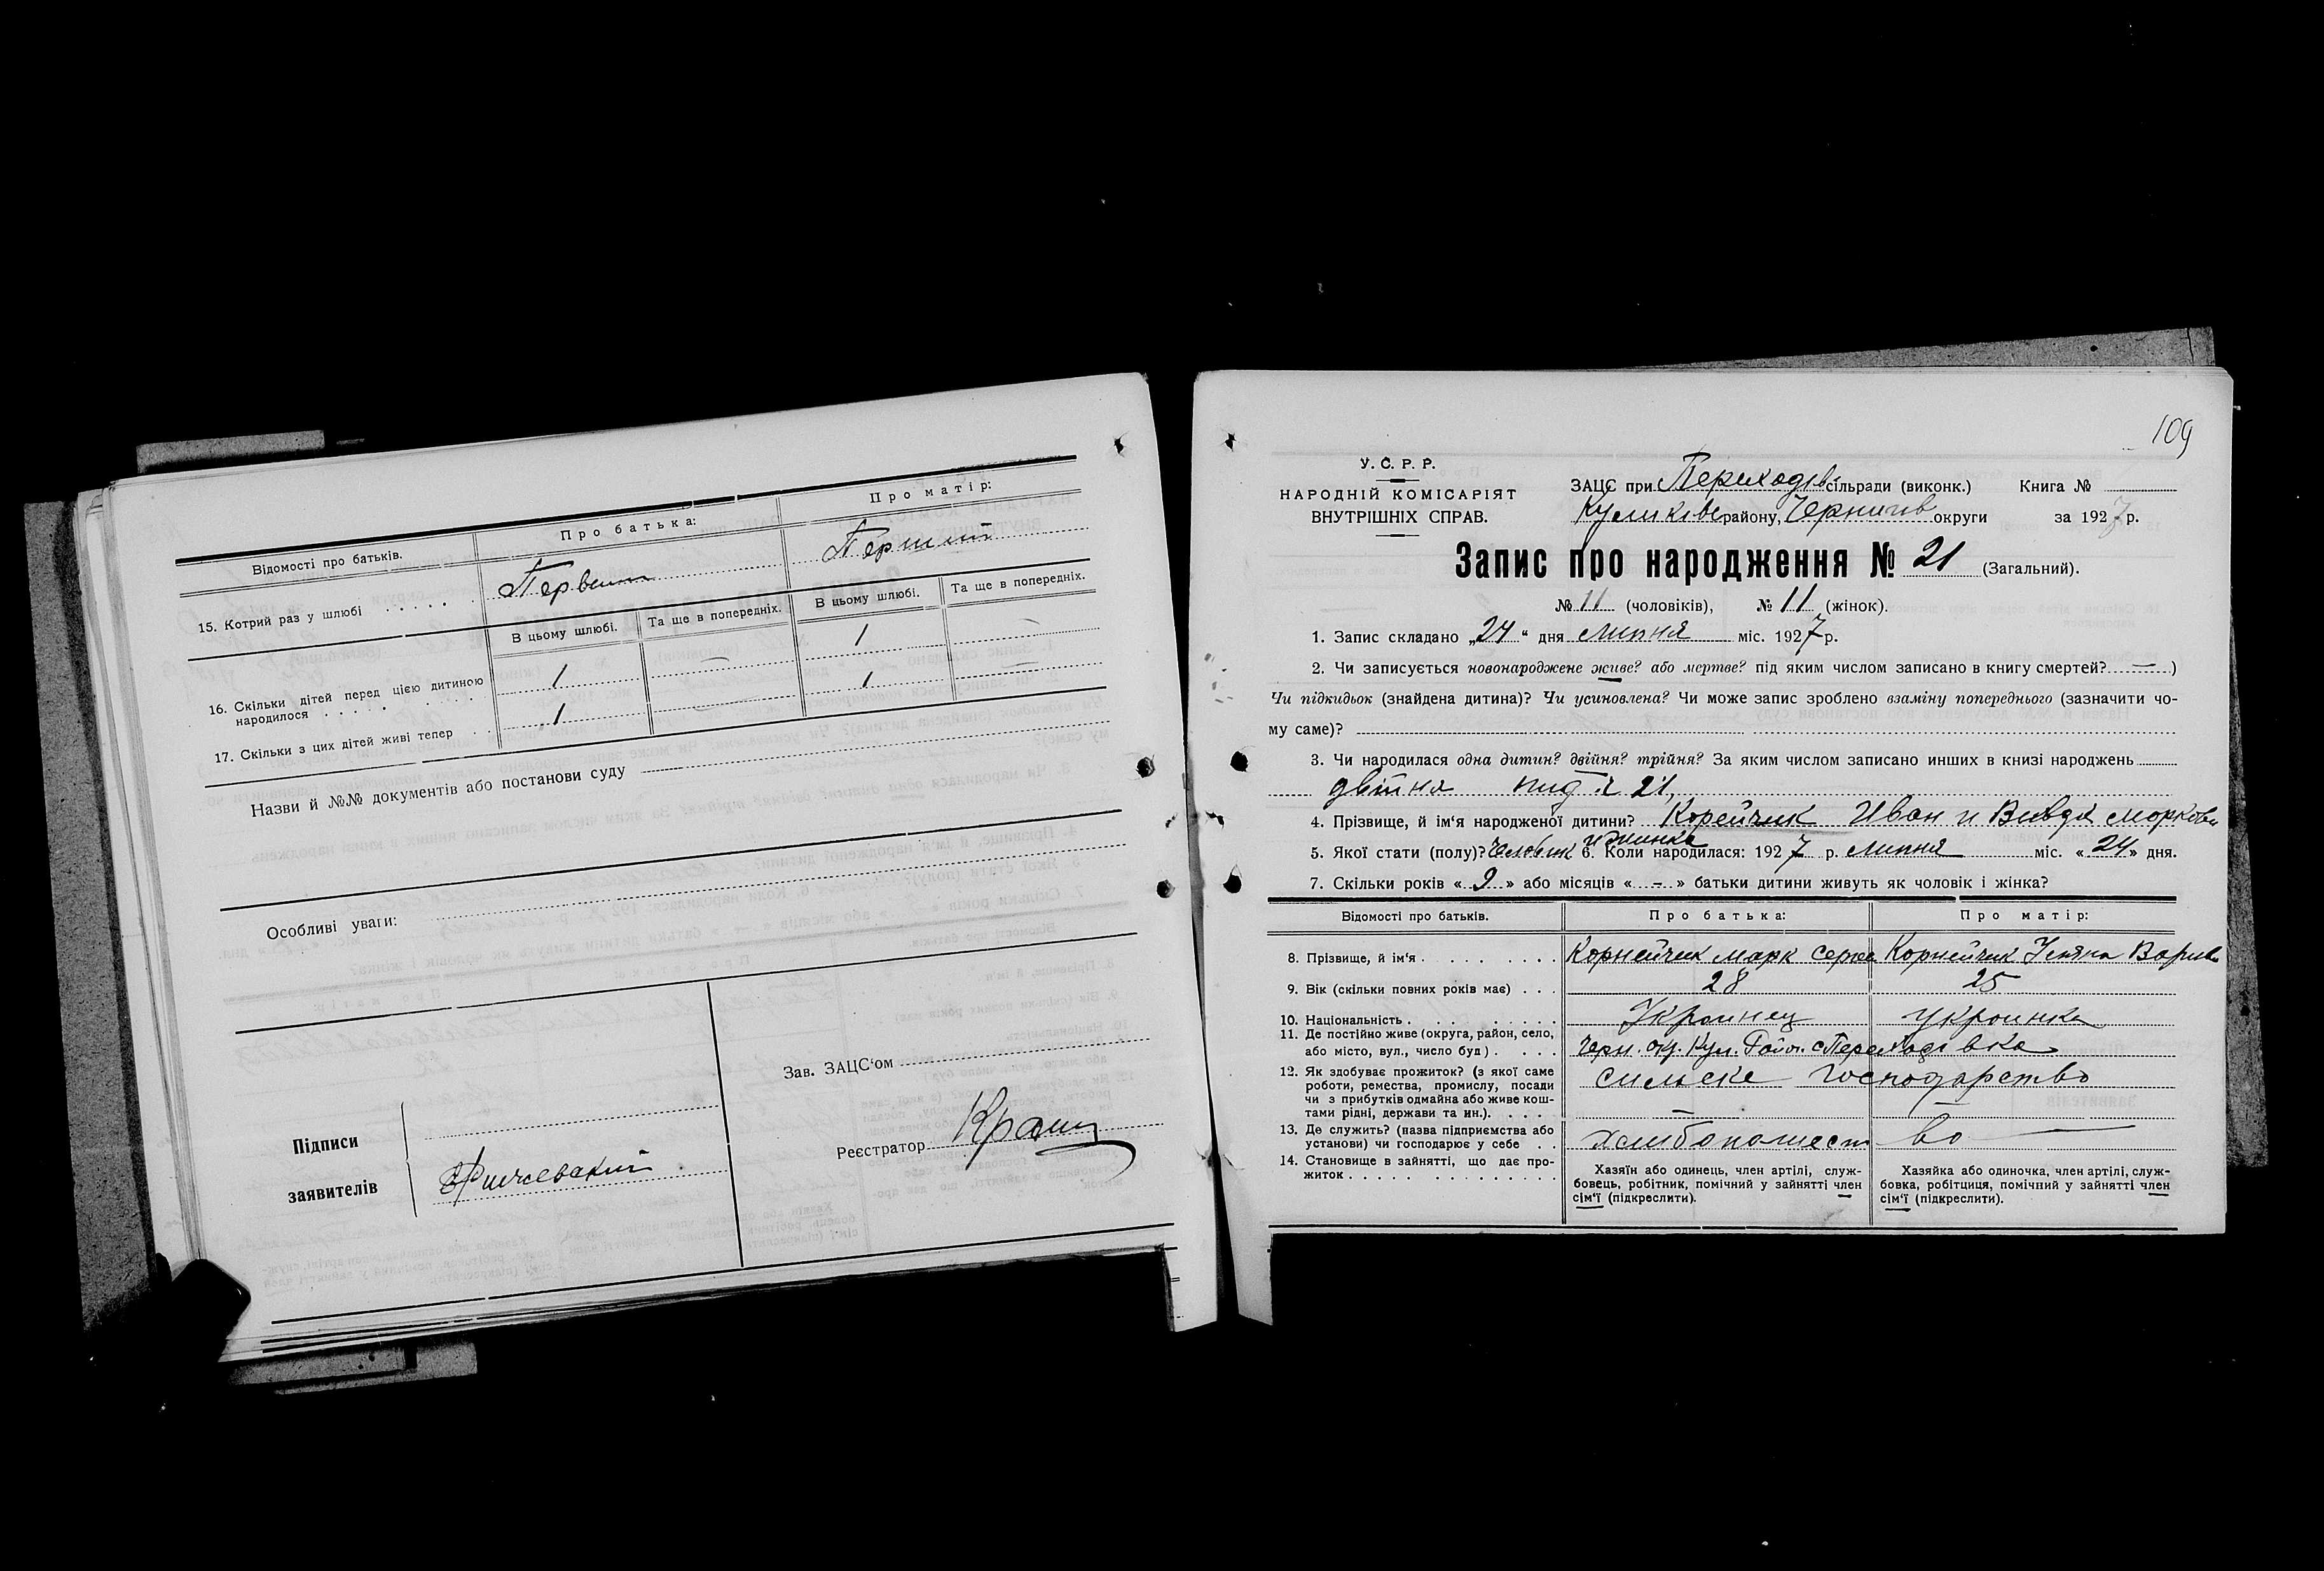 Відомості про батьків.
Про батька:
Про матір:
15. Котрий раз у шлюбі . . . . . .
Первий
Перший
В цьому шлюбі.
Та ще в попередніх.
В цьому шлюбі.
Та ще в попередніх.
16. Скільки дітей перед цією дитиною
народилося . . . . . . . . .
1
—
1
—
17. Скільки з цих дітей живі тепер . .
1
—
1
—
Назви й №№ документів або постанови суду
Особливі уваги:
Підписи
заявителів
Зав. ЗАЦС‘ом
Реєстратор
109
У. С. Р. Р.
НАРОДНІЙ КОМІСАРІЯТ
ВНУТРІШНІХ СПРАВ.
ЗАЦС при Переходів сільради (виконк.) Книга №
Куликівс району, Чернигів округи за 1927 р.
Запис про народження № 21 (Загальний).
№ 11 (чоловіків), № 11 (жінок).
1. Запис складано „24“ дня липня міс. 1927 р.
2. Чи записується новонароджене живе? або мертве? під яким числом записано в книгу смертей? — )
Чи підкидьок (знайдена дитина)? Чи усиновлена? Чи може запис зроблено взаміну попереднього (зазначити чо-
му саме)?
3. Чи народилася одна дитин? двійня? трійня? За яким числом записано инших в книзі народжень
двійня під ч 21,
4. Прізвище, й ім‘я народженої дитини? Корейчик Иван и Вивдя Маркови
5. Якої стати (полу)? Человік и жинка 6. Коли народилася: 1927 р. липня міс. «24» дня.
7. Скільки років «9» або місяців «-» батьки дитини живуть як чоловік і жінка?
Відомості про батьків.
Про батька:
Про матір:
8. Прізвище, й ім‘я . . . . . . . .
Корнейчик Марк Серге
Корнейчик Уляна
9. Вік (скільки повних років має) . . .
28
25
10. Національність . . . . . . . .
Украинец
Украинка
11. Де постійно живе (округа, район, село,
або місто, вул., число буд) . . . .
Черн. окр. Кул. Район. с Переходівка
12. Як здобуває прожиток? (з якої саме
роботи, ремества, промислу, посади
чи з прибутків одмайна або живе кош-
тами рідні, держави та ин.). . . . .
сильске господарство
—
—
13. Де служить? (назва підприємства або
установи) чи господарює у себе . .
хлибопашест во
14. Становище в зайнятті, що дає про-
житок . . . . . . . . . . . . . .
Хазяїн або одинець, член артілі, служ-
бовець, робітник, помічний у зайнятті член
сім‘ї (підкреслити).
Хазяйка або одиночка, член артілі, служ-
бовка, робітциця, помічний у зайнятті член
сім‘ї (підкреслити).